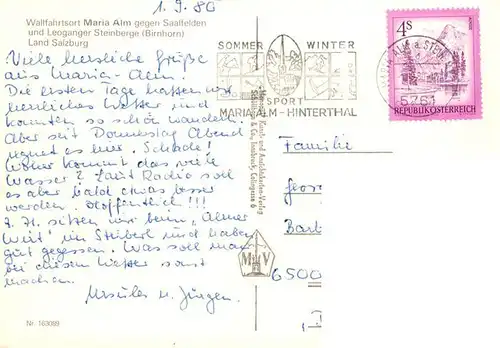 1.9.86
Wallfahrtsort Maria Alm gegen Saalfelden
und Leoganger Steinberge (Birnhorn)
Land Salzburg
Viele herzliche Grüße
aus Maria-Alm!
Die ersten Tage hatten wir
herrliches Wetter und
konnten so schön wandern
Aber seit Donnerstag Abend
regnet es hier. Schade!
Woher kommt das viele
Wasser? Laut Radio soll
es aber bald etwas besser
werden. Hoffentlich!!!
z. Zt. sitzen wir beim „Almer
Wirt" im Stüberl und haben
gut gegessen. Was soll man
bei diesem Wetter sonst
machen.
Ursula u. Jürgen.
Nr. 163089
SOMMER WINTER
SPORT
MARIA ALM-HINTERTHAL
4S
REPUBLIK ÖSTERREICH
MARIA ALM a. STEIN
5761
Kunst- und Ansichtskarten-Verlag
& Co., Innsbruck,
M V
Familie
Georg
6500